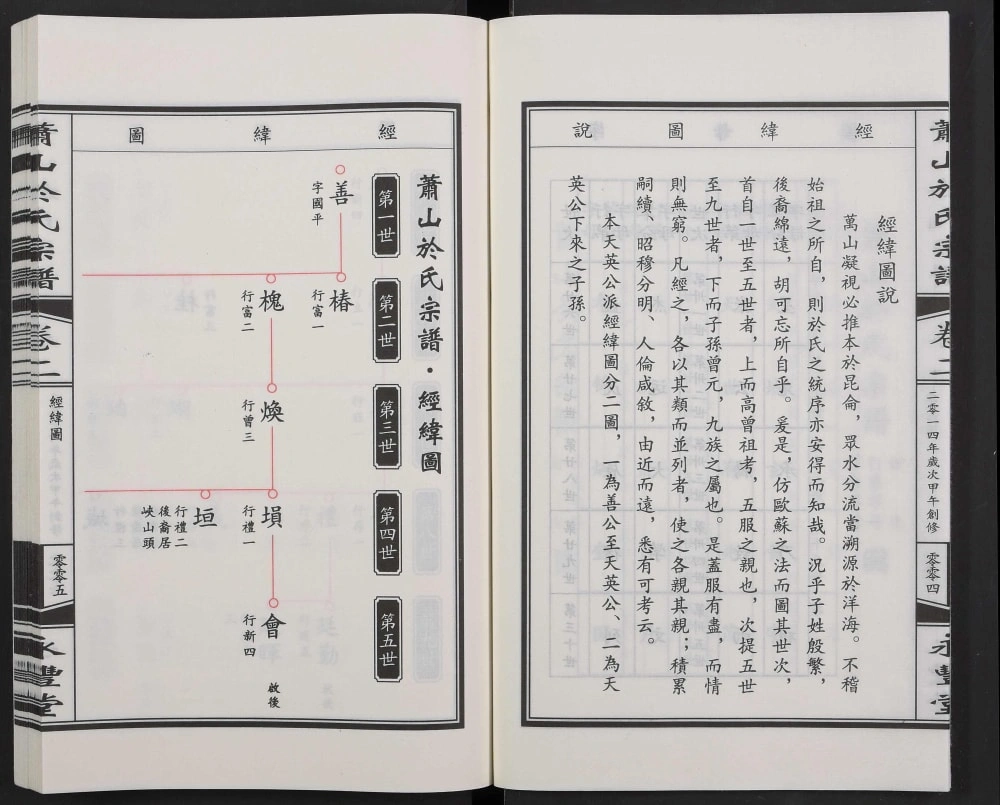 經緯圖說
經緯圖說
萬山凝視必推本於昆侖，眾水分流當溯源於洋海。不稽
始祖之所自，則於氏之統序亦安得而知哉。況乎子姓殷繁，
後裔綿遠，胡可忘所自乎。爰是，仿歐蘇之法而圖其世次，
首自一世至五世者，上而高曾祖考，五服之親也，次提五世
至九世者，下而子孫曾元，九族之屬也。是蓋服有盡，而情
則無窮。凡經之，各以其類而並列者，使之各親其親；積累
嗣續、昭穆分明、人倫咸敘，由近而遠，悉有可考云。
本天英公派經緯圖分二圖，一為善公至天英公、二為天
英公下來之子孫。
蕭山於氏宗譜
卷二
二零一四年歲次甲午創修
零零四
永豐堂
經緯圖
蕭山於氏宗譜·經緯圖
第一世
第二世
第三世
第四世
第五世
善
字國平
椿
行富一
槐
行富二
煥
行曾三
塤
行禮一
垣
行禮二
後裔居
峽山頭
會
行新四
啟後
蕭山於氏宗譜
卷二
經緯圖
零零五
永豐堂